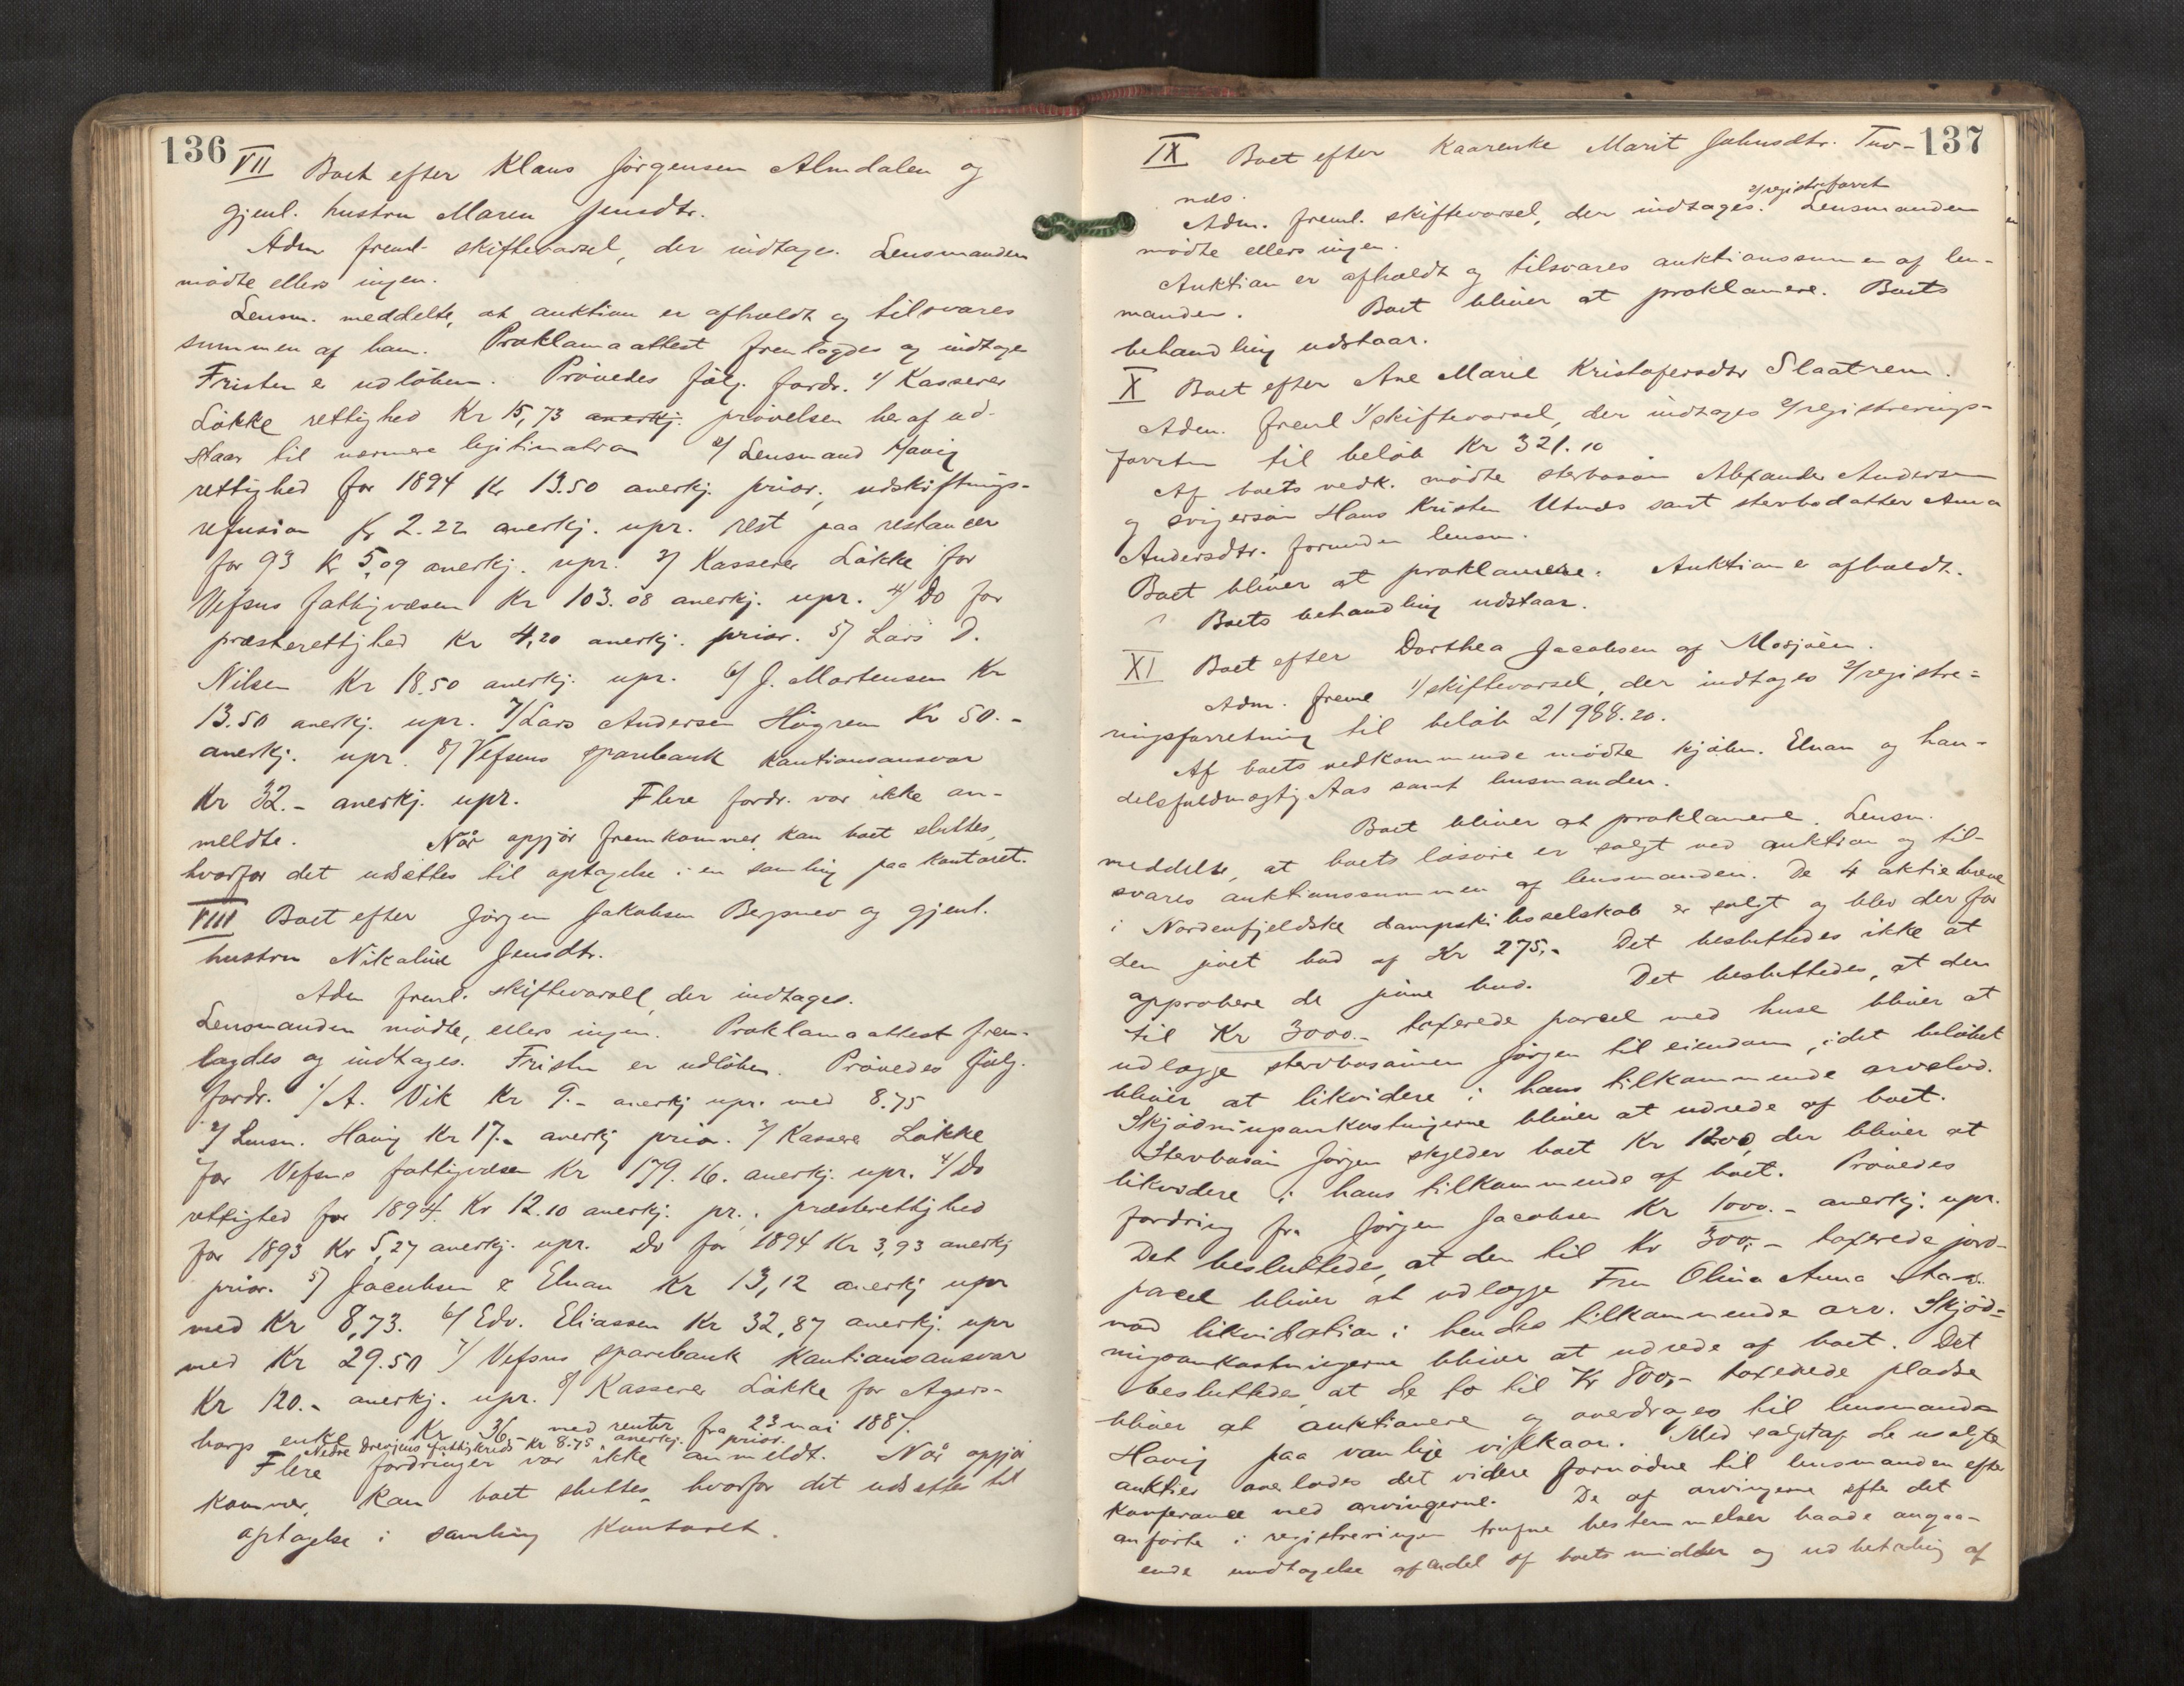 136
VII Boet efter Klaus Jörgensen Almdalen og
gjenl. hustru Maren Jensdtr.
Adm freml. skiftevarsel, der indtages. Lensmanden
mödte ellers ingen.
Lensm. meddelte, at auktion er afholdt og tilsvares
summen af ham. Proklamaattest fremlagdes og indtages
Fristen er udlöben. Prövedes fölg. fordr. 1/ Kasserer
Lökke rettighed Kr 15,73 anerkj. prövelsen heraf ud-
staar til nærmere legitimation 2/ Lensmand Havig
rettighed for 1894 Kr 13.50 anerkj. prior., udskiftnings-
refusion Kr 2.22 anerkj. upr. rest paa restancer
for 93 Kr 5,09 anerkj. upr. 3/ Kasserer Lökke for
Vefsns fattigvæsen Kr 103.08 anerkj. upr. 4/ Do for
præsterettighed Kr 4,20 anerkj. prior. 5/ Lars D.
Nilsen Kr 18.50 anerkj. upr. 6/ J. Mortensen Kr
13.50 anerkj. upr. 7/ Lars Andersen Högrem Kr 50.-
anerkj. upr. 8/ Vefsens sparebank kautionsansvar
Kr 32.- anerkj. upr. Flere fordr. var ikke an-
meldte. Når opgjör fremkommer kan boet sluttes,
hvorfor det udsættes til optagelse i en samling paa kontoret.
VIII Boet efter Jörgen Jakobsen og gjenl.
hustru Nikoline Jensdtr.
Adm freml. skiftevarsel, der indtages.
Lensmanden mödte, ellers ingen. Proklamaattest frem-
lagdes og indtages. Fristen er udlöben. Prövedes fölg.
fordr. 1/ A. Vik Kr 9.- anerkj upr. med 8.75
2/ Lensm. Havig Kr 17.- anerkj prior. 3/ Kasserer Lökke
for Vefsns fattigvæsen Kr 179.16. anerkj. upr. 4/ Do
rettighed for 1894. Kr 12.10 anerkj. pr., præsterettighed
for 1893 Kr 5,27 anerkj. upr. Do for 1894 Kr 3,93 anerkj
prior. 5/ Jacobsen & Elnan Kr 13,12 anerkj upr
med Kr 8,73. 6/ Edv. Eliassen Kr 32,87 anerkj. upr
med Kr 29.50 7/ Vefsns sparebank kautionsansvar
Kr 120.- anerkj. upr. 8/ Kasserer Lökke for Agers-
borgs enke Kr 36,- med renter fra 23 mai 1887.
Nedre Drevjens fattigkreds Kr 8.75. anerkj. prior.
Flere fordringer var ikke anmeldt. Når opgjör
kommer, kan boet sluttes, hvorfor det udsættes til
optagelse i samling kontoret.
137
IX Boet efter Kaarenke Marit Johnsdtr. Tuv-
nes.
2/ registreforret
Adm. freml. skiftevarsel, der indtages. Lensmanden
mödte ellers ingen.
Auktion er afholdt og tilsvares auktionssummen af len-
manden. Boet bliver at proklamere. Boets
behandling udstaar.
X Boet efter Ane Marie Kristofersdtr Slaatrem.
Adm. freml 1/ skiftevarsel, der indtages 2/ registrerings-
forretn til belöb Kr 321.10
Af boets vedk. mödte sterbosön Alexander Andersen
og svigersön Hans Kristen Utnæs samt sterbodatter Anna
Andersdtr. foruden lensm.
Boet bliver at proklamere. Auktion er afholdt.
Boets behandling udstaar.
XI Boet efter Dorthea Jacobsen af Mosjöen.
Adm. freml 1/ skiftevarsel, der indtages 2/ registre-
ringsforretning til belöb 21988.20.
Af boets vedkommende mödte kjöbm. Elnan og han-
delsfuldmægtig Aas samt lensmanden.
Boet bliver at proklamere. Lensm.
meddelte, at boets lösöre er solgt ved auktion og til-
svares auktionssummen af lensmanden. De 4 aktiebreve
i Nordenfjeldske dampskibsselskab er solgt og blev der for
dem givet bud af Kr 275,- Det besluttedes ikke at
approbere de givne bud. Det besluttedes, at den
til Kr 3000.- taxerede parcel med huse bliver at
udlægge sterbosönnen Jörgen til eiendom, idet belöbet
bliver at likvidere i hans tilkommende arvelod.
Skjödningsomkostningerne bliver at udrede af boet.
Sterbosön Jörgen skylder boet Kr 1200, der bliver at
likvidere i hans tilkommende af boet. Prövedes
fordring fra Jörgen Jacobsen Kr 1000.- anerkj. upr.
Det besluttedes, at den til Kr 300,- taxerede jord-
parcel bliver at udlægge Fru Olina Anna Aas
mod likvidation i hendes tilkommende arv. Skjöd-
ningsomkostningerne bliver at udrede af boet. Det
besluttedes, at de to til Kr 800,- taxerede pladse
bliver at auktionere og overdrages til lensmand
Havig paa vanlige vilkaar. Med salget af de usolgte
aktier overlodes det videre fornödne til lensmanden efter
konferance med arvingerne. De af arvingerne efter det
anförte i registreringen trufne bestemmelser baade angaa-
ende undtagelse af endel af boets midler og udbetaling af